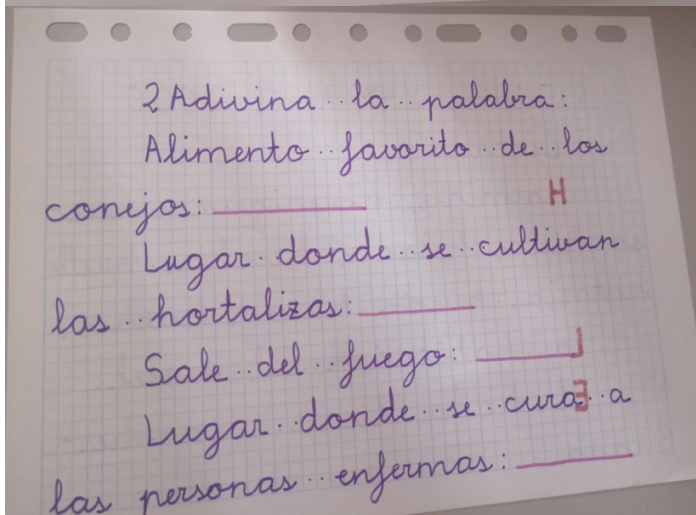 2 Adivina la palabra:
Alimento favorito de los
conejos: __________
H
Lugar donde se cultivan
las hortalizas: __________
Sale del fuego: __________
Lugar donde se cura a
las personas enfermas: __________